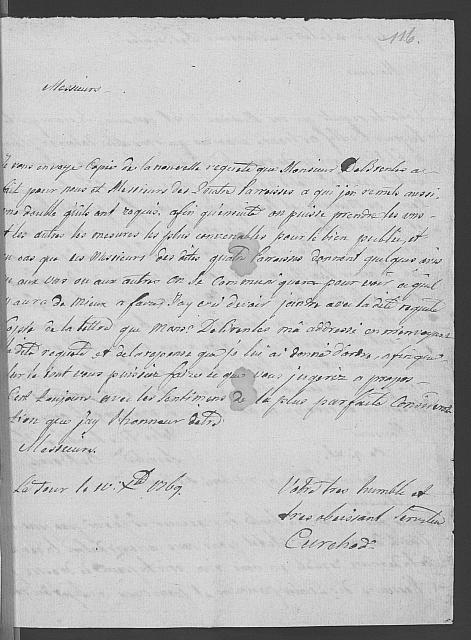 116.
Messieurs
Je vous envoye Copie de la nouvelle requete que Monsieur DeBrenles a
fait pour nous et Messieurs des quatre Parroisses a qui j'en remets aussi
un double qu'ils ont requis, afin qu'ensuite on puisse prendre les uns
et les autres les mesures les plus convenables pour le bien public, et
au cas que les Messieurs des dites quatre Parroisses donnent quelque avis
aux uns ou aux autres on se Communiquera pour voir ce quil
y aura de mieux a faire. J'ay cru devoir joindre avec la dite requete
Copie de la lettre que Monsr DeBrenles m'a addressé en m'envoyant
la dite requete et de la reponse que je lui ai donné d'ordre, afin que
sur le tout vous puissiez faire ce que vous jugerez a propos
C'est toujours avec les sentimens de la plus parfaite Considera
tion que j'ay l'honneur detre
Messieurs.
La Tour le 10e Xbre 1769.
Votre tres humble et
tres obeissant serviteur
Curchod